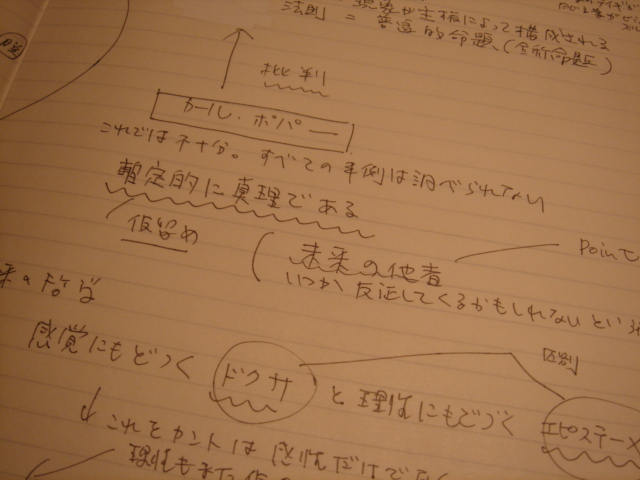 現実が主権によって構成される
法則 = 普遍的命題、(全称命題)
批判
カール・ポパー
これでは不十分。すべての事例は調べられない
暫定的に真理である
仮留め
未来の他者
Pointで
いつか反証してくるかもしれないという
感覚にもとづく ドクサ と理性にもとづく エピステーメ
区別
これをカントは感性だけでなく
理性もまた仮